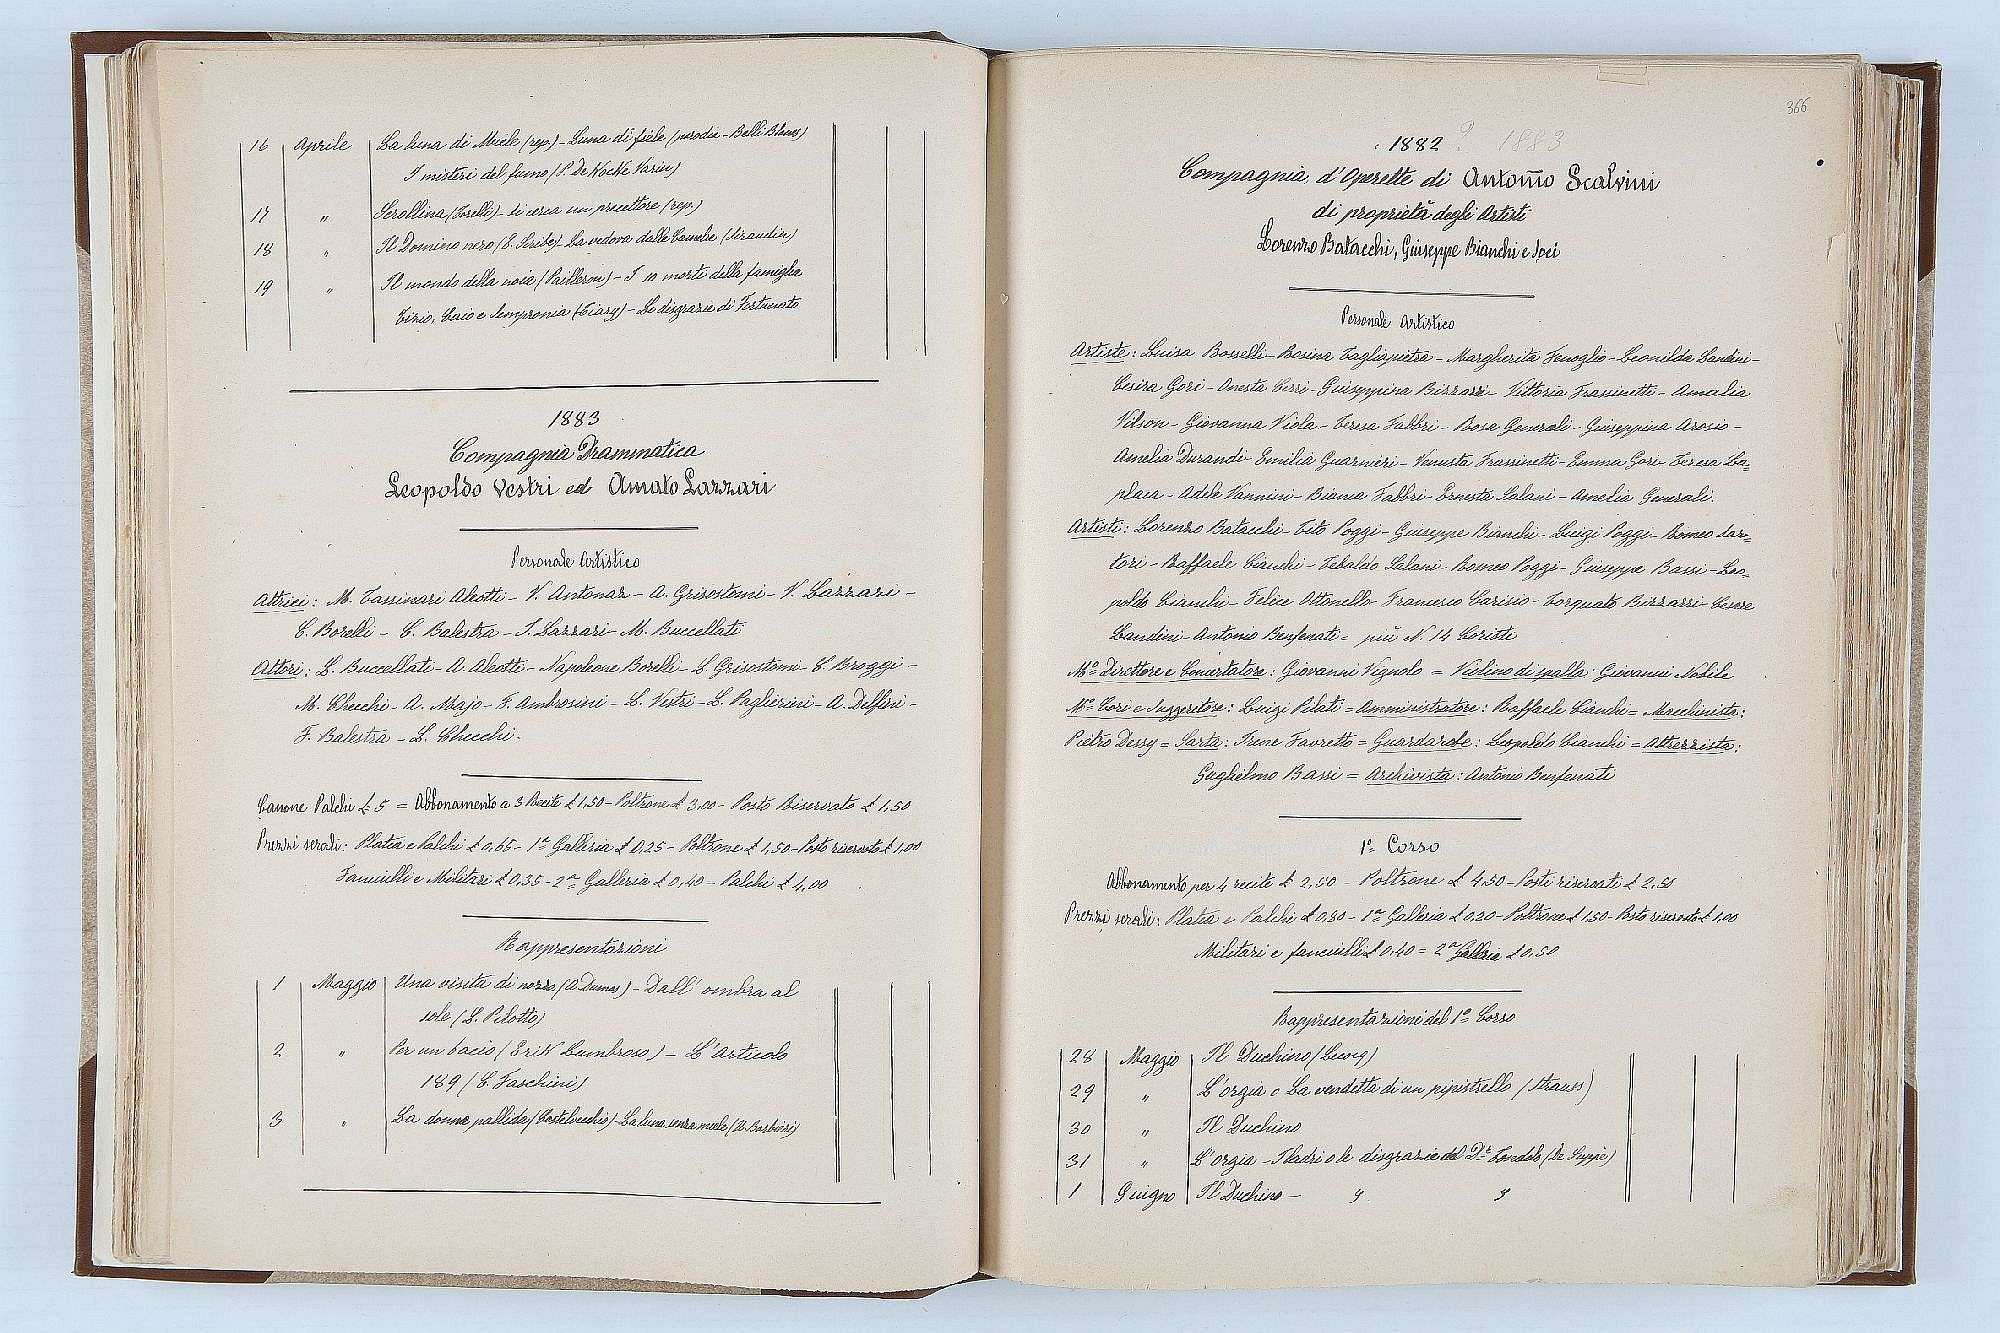 16 Aprile La luna di Miele (rep.) - Luna di fiele (parodia - Belli Blanes)
I misteri del fumo (P. De Kocke Varin)
17 " Scrollina (Torelli) - Si cerca un precettore (rep.)
18 " Il Domino nero (E. Scribe) - La vedova dalle Camelie (Siraudin)
19 " Il mondo della noia (Pailleron) - I 10 morti della famiglia
Tizio, Caio e Sempronia - Le disgrazie di Fortunato
1883
Compagnia Drammatica
Leopoldo Vestri ed Amato Lazzari
Personale Artistico
Attrici: M. Tassinari Aleotti - V. Antonaz - A. Grisostomi - V. Lazzari -
C. Borelli - C. Balestra - I. Lazzari - M. Buccellati
Attori: L. Buccellati - A. Aleotti - Napoleone Borelli - L. Grisostomi - C. Broggi -
M. Checchi - A. Majo - F. Ambrosini - L. Vestri - L. Paglierini - A. Delfini -
F. Balestra - L. Checchi.
Canone Palchi £ 5 = Abbonamento a 3 Recite £ 1,50 - Poltrone £ 3,00 - Posto Riservato £ 1,50
Prezzi serali: Platea e Palchi £ 0,65 - 1ª Galleria £ 0,25 - Poltrone £ 1,50 - Posto riservato £ 1,00
Fanciulli e Militari £ 0,35 - 2ª Galleria £ 0,40 - Palchi £ 4,00
Rappresentazioni
1 Maggio Una visita di nozze (A. Dumas) - Dall' ombra al
sole (L. Pilotto)
2 " Per un bacio (Erik Lumbroso) - L'Articolo
189 (C. Faschini)
3 " La donna pallida (Castelvecchio) - La luna senza miele (A. Barbieri)
366
1882 ? 1883
Compagnia d'Operette di Antonio Scalvini
di proprietà degli Artisti
Lorenzo Batacchi, Giuseppe Bianchi e Soci
Personale Artistico
Artiste: Luisa Bosselli - Rosina Tagliapietra - Margherita Fenoglio - Leonilda Landini -
Cesira Gori - Onesta Cerri - Giuseppina Bizzarri - Vittoria Frassinetti - Amalia
Vilson - Giovanna Viola - Teresa Fabbri - Rosa Generali - Giuseppina Arosio -
Amelia Durandi - Emilia Guarnieri - Venusta Frassinetti - Emma Gori - Teresa La=
placa - Adele Vannini - Bianca Fabbri - Ernesta Salani - Amelia Generali.
Artisti: Lorenzo Batacchi - Tito Poggi - Giuseppe Bianchi - Luigi Poggi - Romeo Sar=
tori - Raffaele Cianchi - Tebaldo Salani - Romeo Poggi - Giuseppe Bassi - Leo=
poldo Cianchi - Felice Ottonello - Francesco Carisio - Torquato Bizzarri - Cesare
Landini - Antonio Benfenati = più N. 14 Coriste
Mº Direttore e Concertatore: Giovanni Vignolo = Violino di spalla: Giovanni Nobile
Mº Cori e Suggeritore: Luigi Pilati = Amministratore: Raffaele Cianchi = Macchinista:
Pietro Dessy = Sarta: Irene Favretto = Guardarobe: Leopoldo Cianchi = Attrezzista:
Guglielmo Bassi = Archivista: Antonio Benfenati
1º Corso
Abbonamento per 4 recite £ 2,50 - Poltrone £ 4,50 - Posti riservati £ 2,50
Prezzi serali: Platea e Palchi £ 0,80 - 1ª Galleria £ 0,20 - Poltrone £ 1,50 - Posto riservato £ 1,00
Militari e fanciulli £ 0,40 = 2ª Galleria £ 0,50
Rappresentazioni del 1º Corso
28 Maggio Il Duchino (Lecoq)
29 " L'orgia o La vendetta di un pipistrello (Strauss)
30 " Il Duchino
31 " L'orgia - I ladri o le disgrazie del Dr. (De Suppé)
1 Giugno Il Duchino - " "